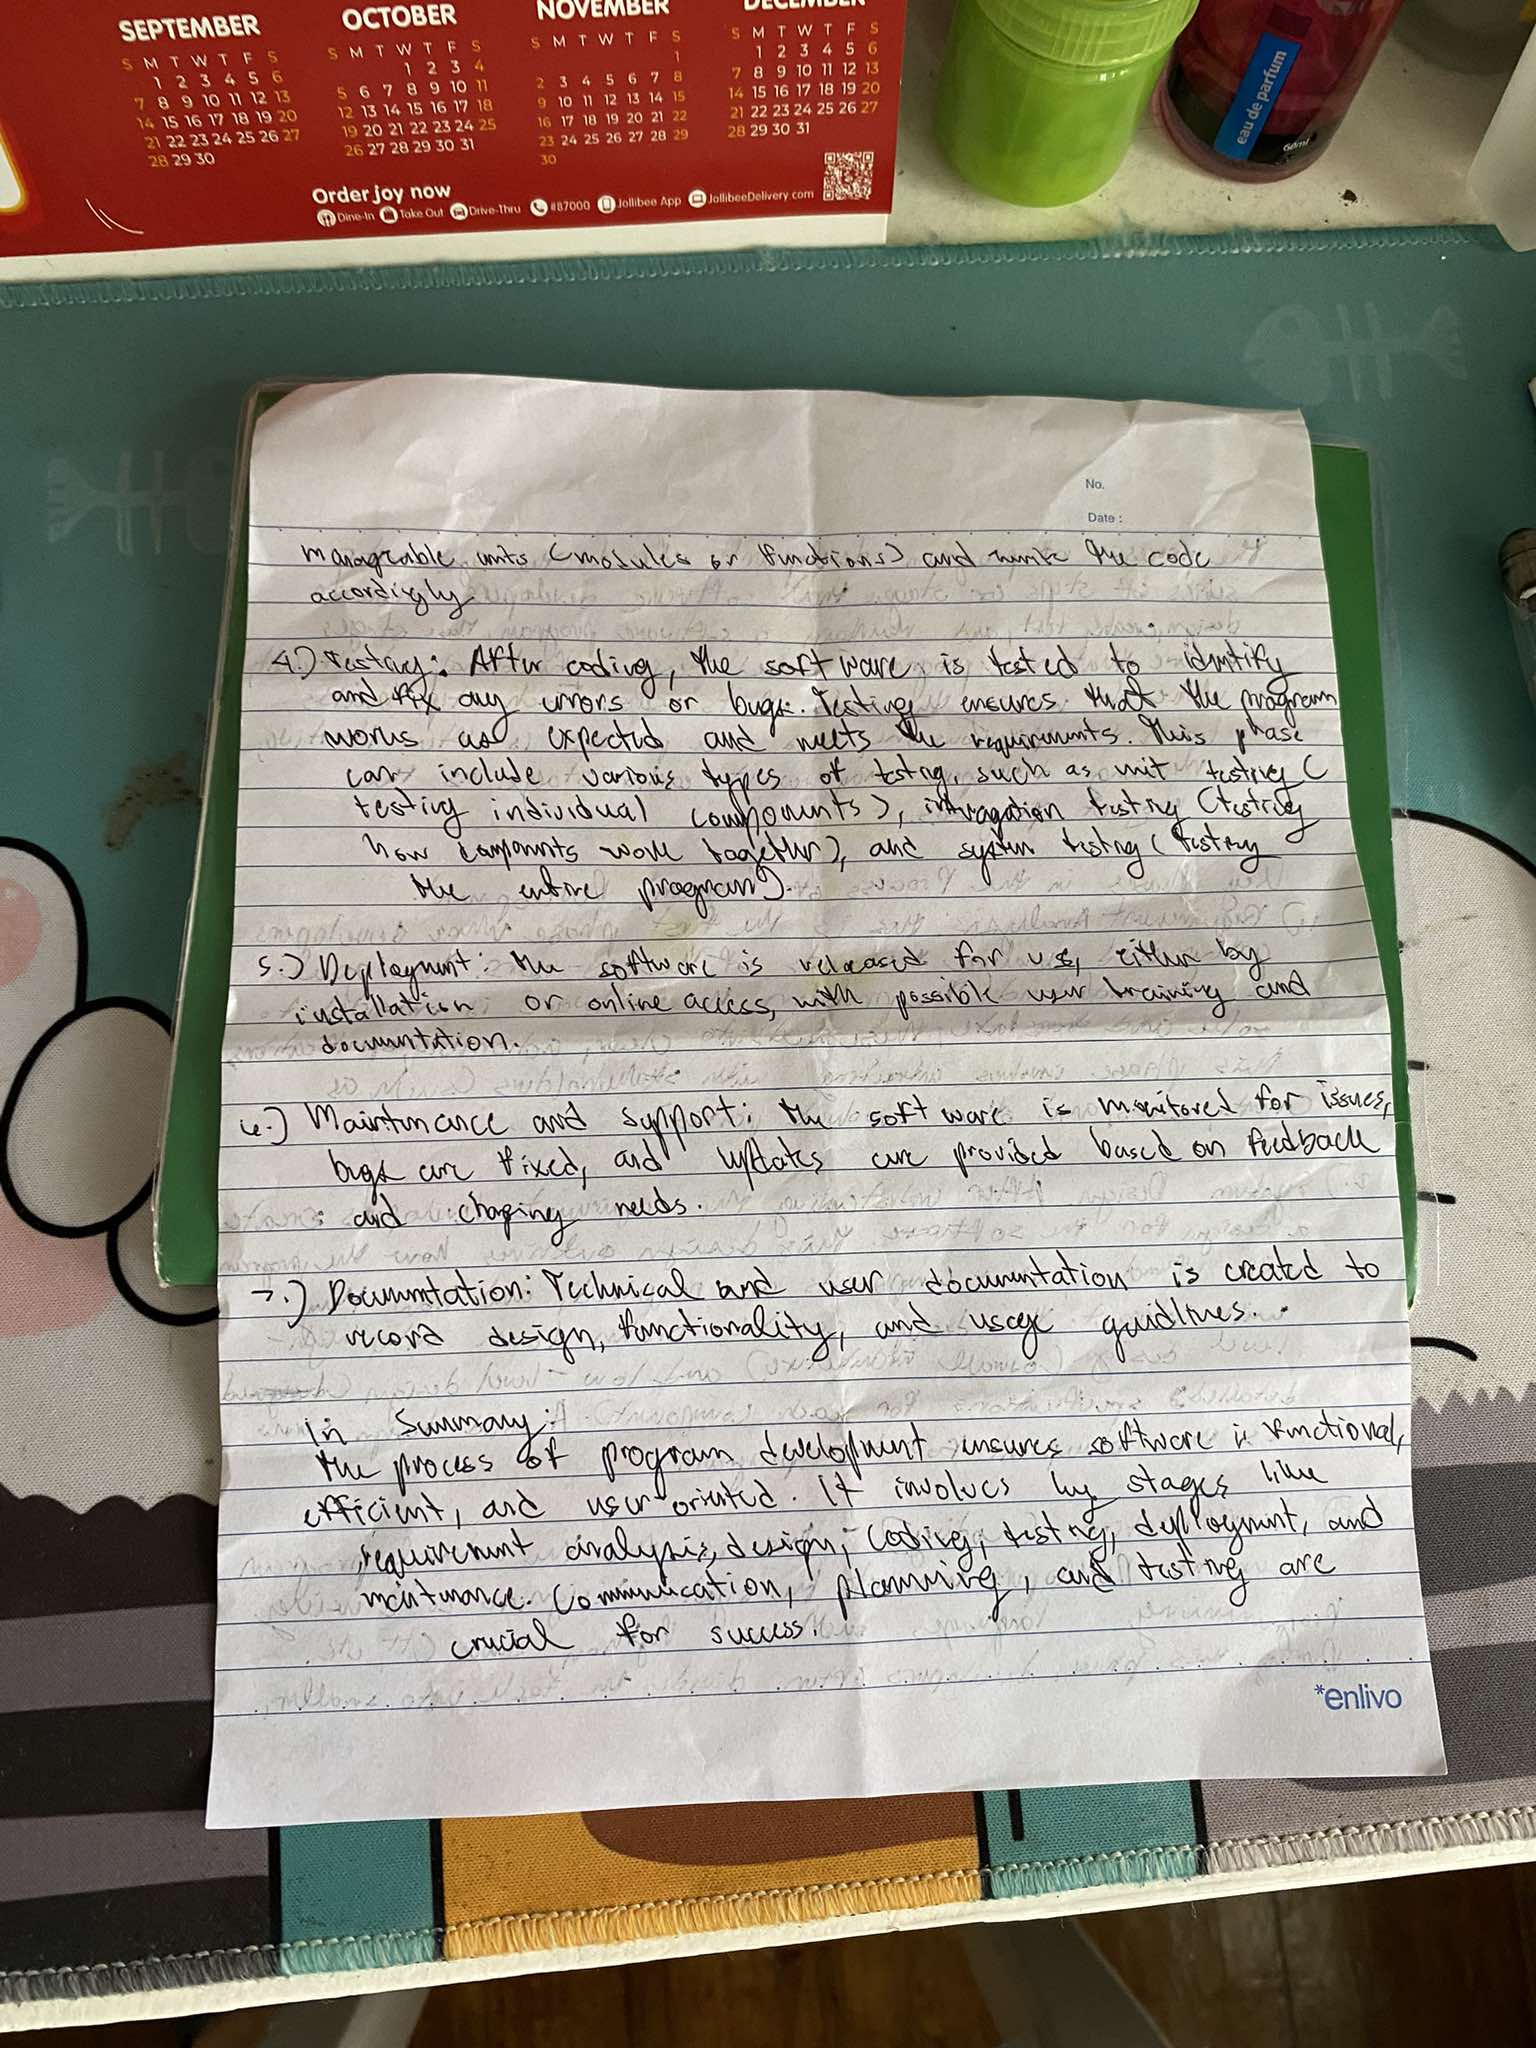 SEPTEMBER
S M T W T F S
1 2 3 4 5 6
7 8 9 10 11 12 13
14 15 16 17 18 19 20
21 22 23 24 25 26 27
28 29 30
OCTOBER
S M T W T F S
1 2 3 4
5 6 7 8 9 10 11
12 13 14 15 16 17 18
19 20 21 22 23 24 25
26 27 28 29 30 31
NOVEMBER
S M T W T F S
1
2 3 4 5 6 7 8
9 10 11 12 13 14 15
16 17 18 19 20 21 22
23 24 25 26 27 28 29
30
DECEMBER
S M T W T F S
1 2 3 4 5 6
7 8 9 10 11 12 13
14 15 16 17 18 19 20
21 22 23 24 25 26 27
28 29 30 31
Order joy now
Dine-In Take Out Drive-Thru #87000 Jollibee App JollibeeDelivery.com
eau de parfum
60ml
No.
Date :
manageable units (modules or functions) and write the code
accordingly
4.) Testing: After coding, the software is tested to identify
and fix any errors or bugs. Testing ensures that the program
works as expected and meets the requirements. This phase
can include various types of testing, such as unit testing (
testing individual components), intragation testing (testing
how components work together), and system testing (testing
the entire program).
5.) Deployment: the software is released for use, either by
installation or online access, with possible user training and
documentation.
6.) Maintenance and support: the software is monitored for issues,
bugs are fixed, and updates are provided based on feedback
and changing needs.
7.) Documentation: Technical and user documentation is created to
record design, functionality, and usage guidlines.
In Summary:
the process of program development ensures software is functional,
efficient, and user-oriented. It involves key stages like
requirement analysis, design, coding, testing, deployment, and
maintenance. Communication, planning, and testing are
crucial for success.
*enlivo